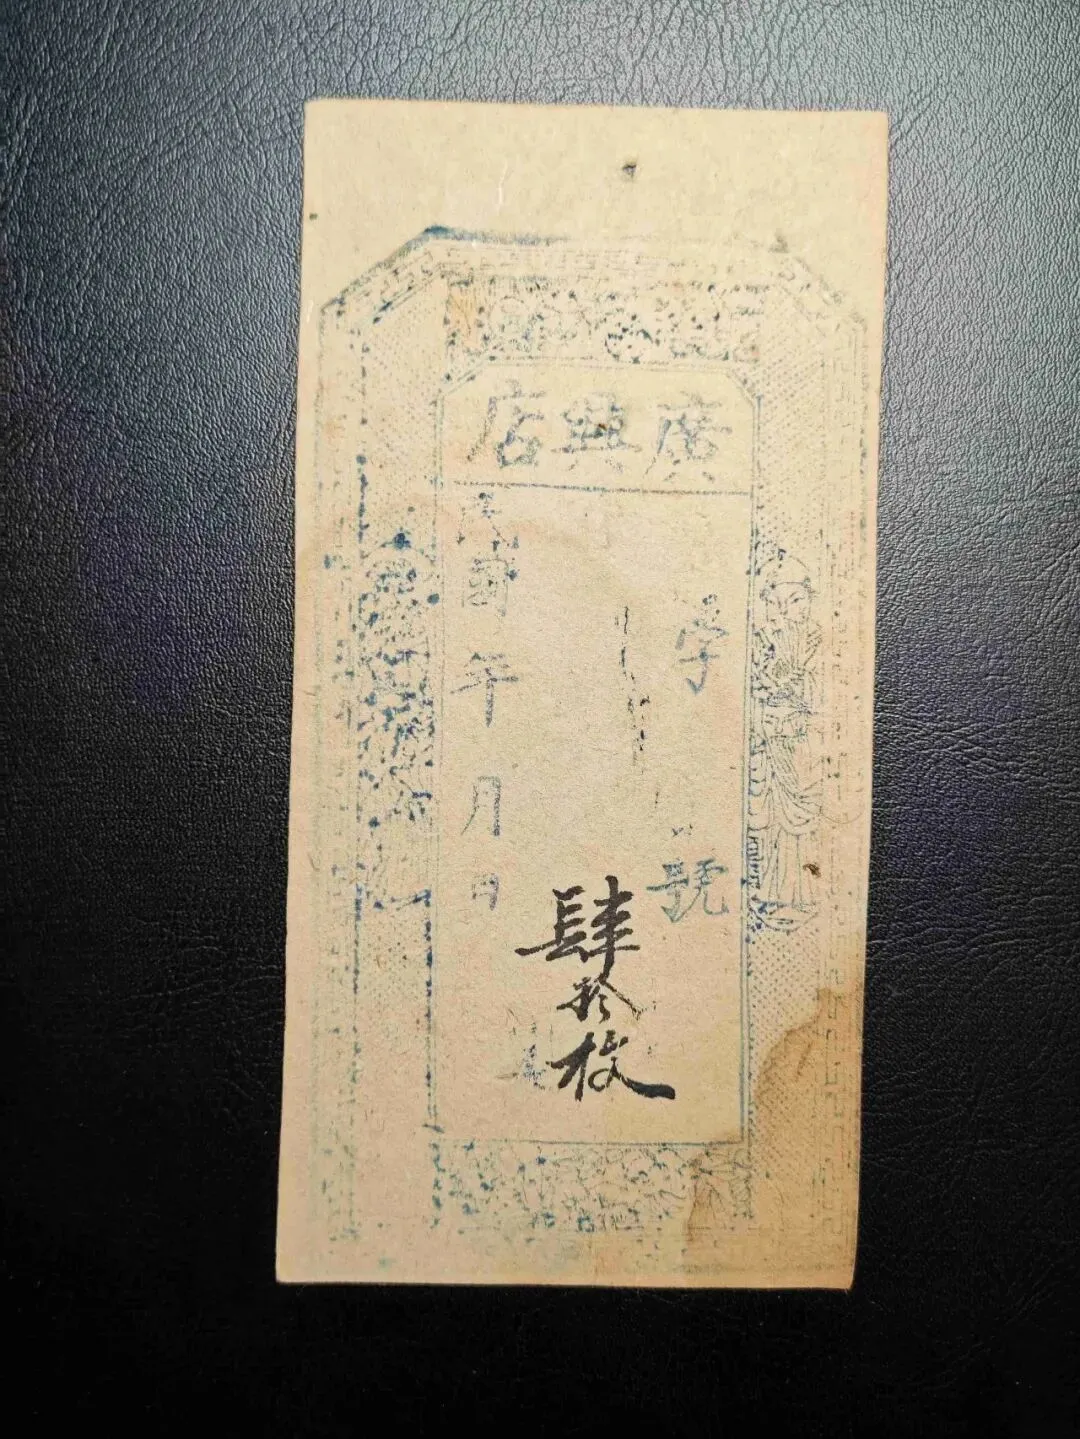 廣興店
字 號
肆拾枚
民國 年 月 日